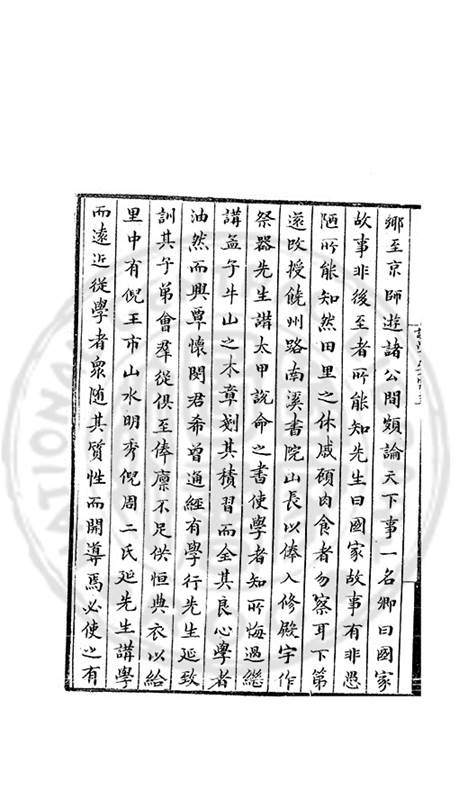 鄉至京師遊諸公間類論天下事一名卿曰國家
故事非後至者所能知先生曰國家故事有非愚
陋所能知然田里之休戚顧肉食者勿察耳下第
遂改授饒州路南溪書院山長以俸入修殿宇作
祭器先生講太甲說命之書使學者知所悔過繼
講孟子牛山之木章刬其積習而全其良心學者
油然而興覃懷閔君希曽通經有學行先生延致
訓其子弟會羣從俱至俸廪不足供恒典衣以給
里中有倪王市山水明秀倪周二氏延先生講學
而遠近從學者衆随其質性而開導焉必使之有